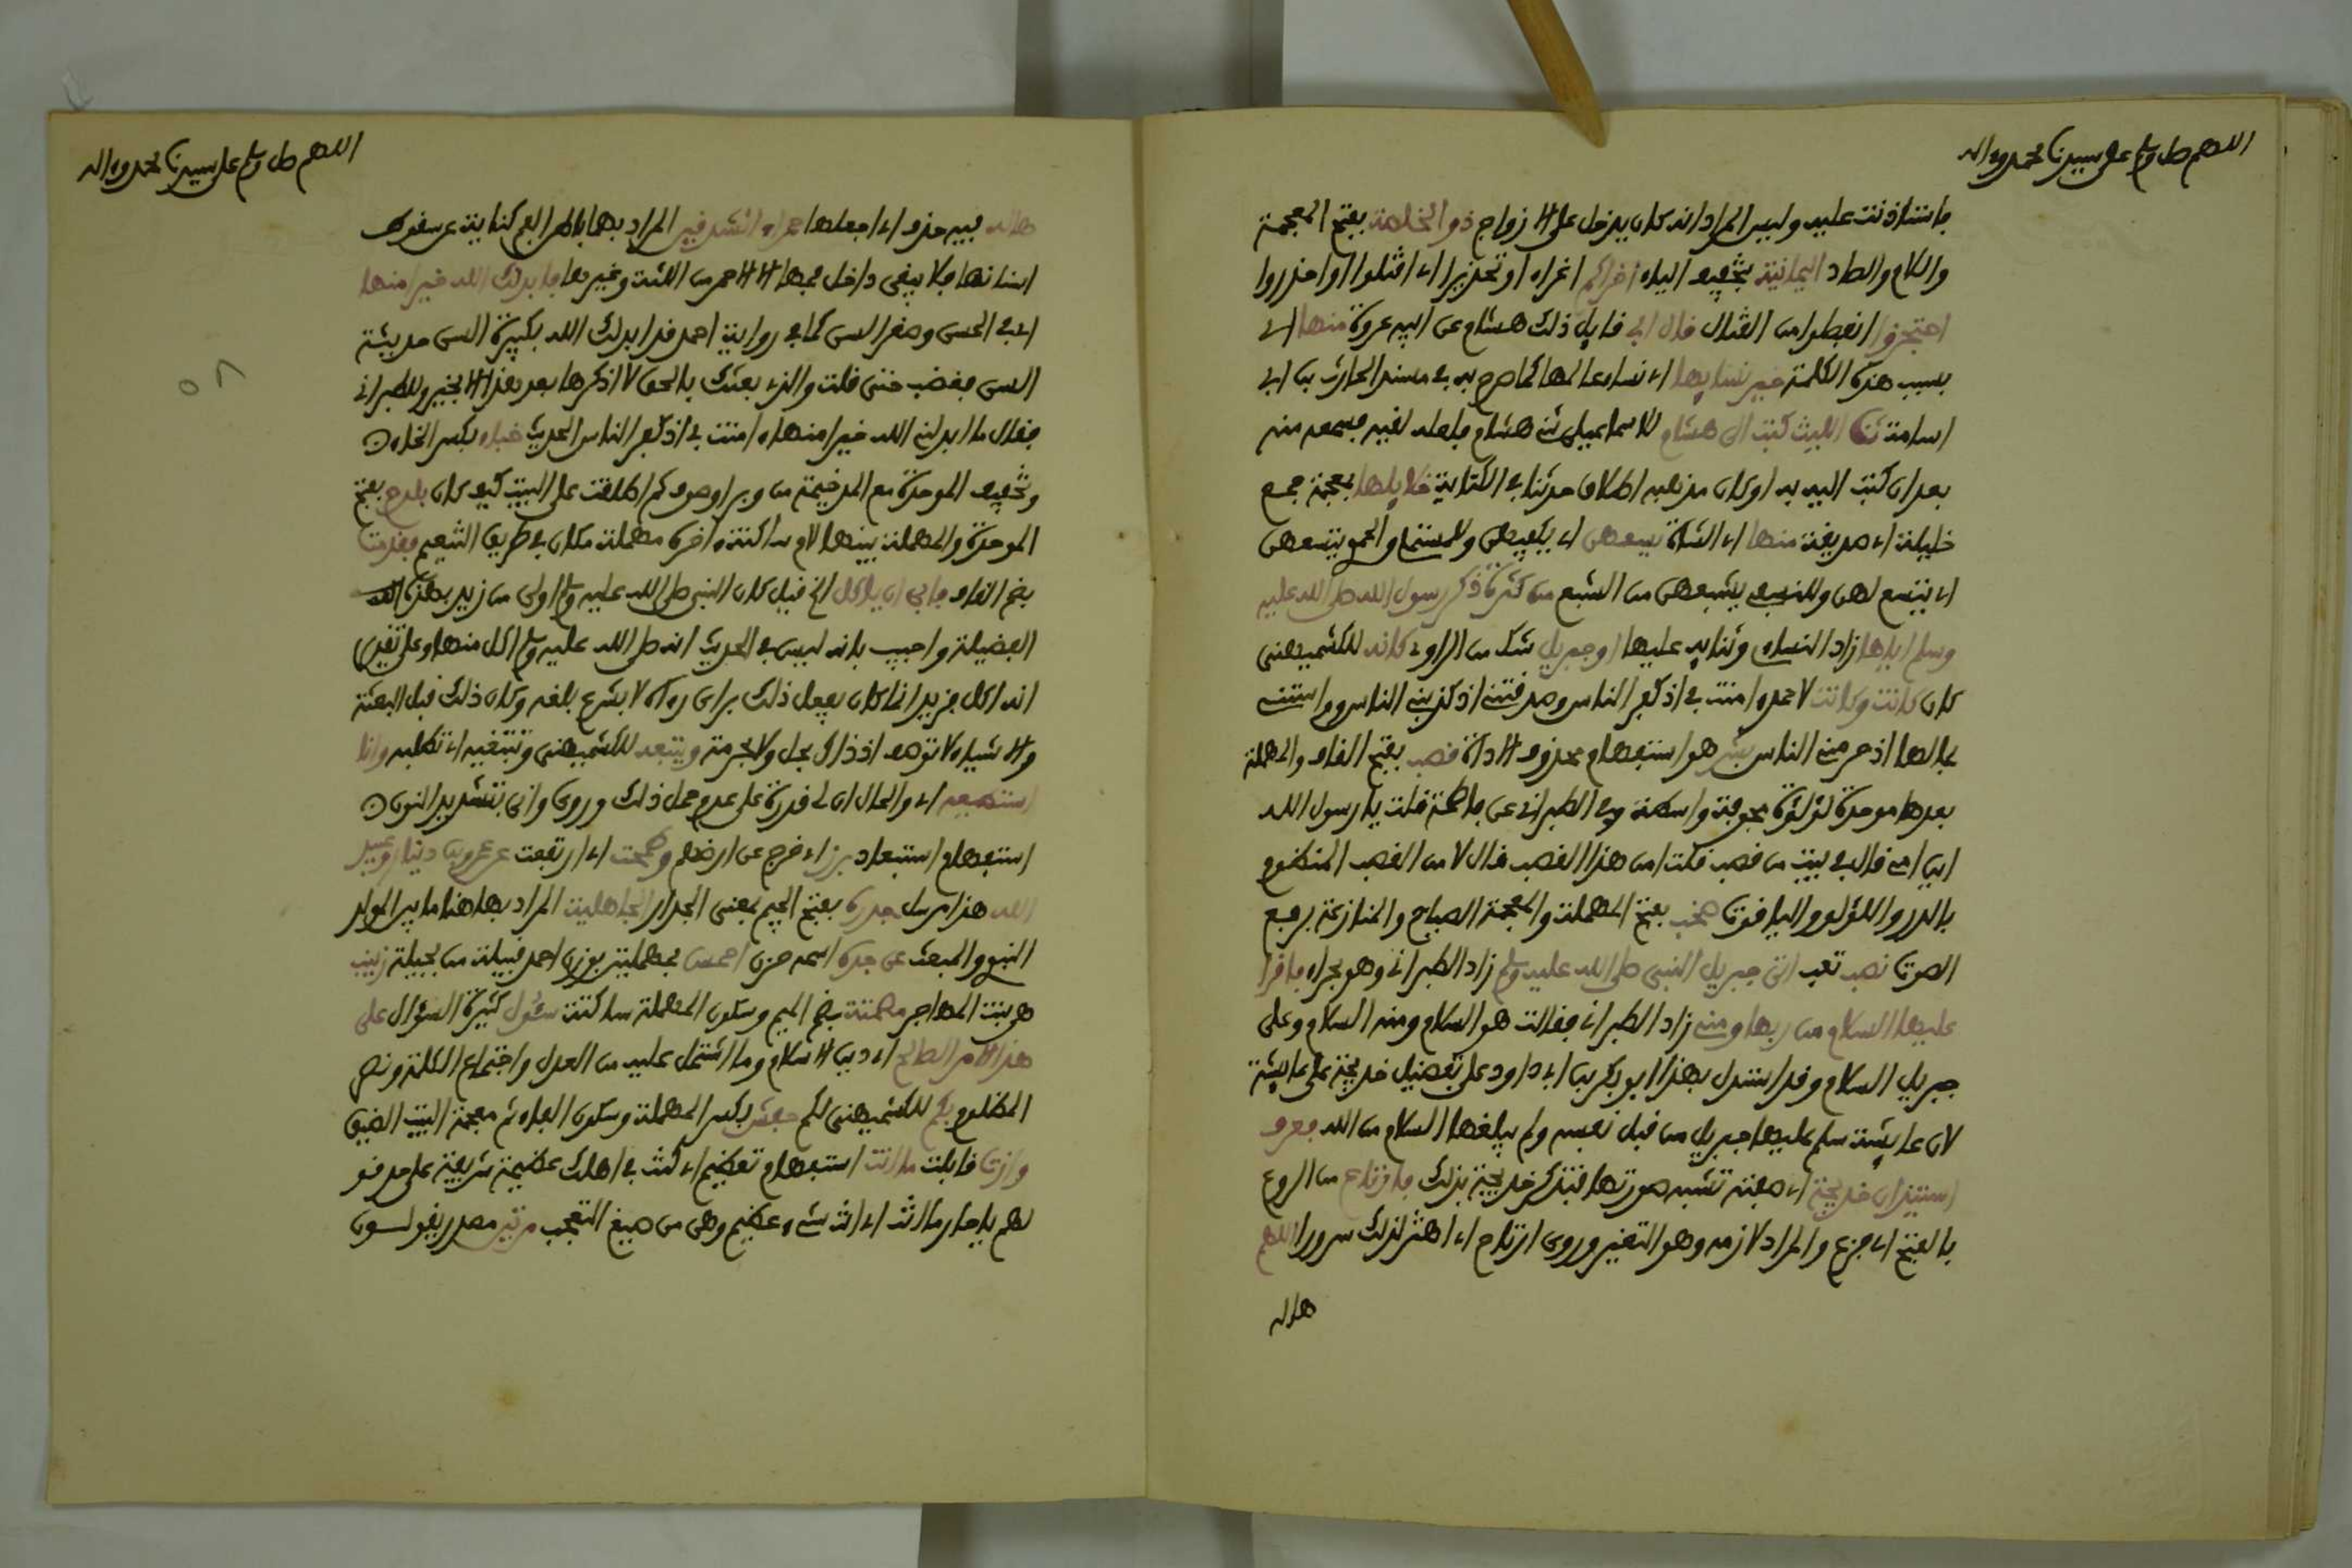 اللهم صل وسلم على سيدنا محمد وءاله
فاستاذنت عليه وليس المراد انه كان يدخل على الازواج ذو الخلصة بفتح المعجمة
واللام والصاد اليمانية بتخفيف الياء اخراكم اغراء او تحذير اي اقتلوا او احذروا
احتجزوا انفصلوا من القتال قال ابي قايل ذلك هشام عن ابيه عروة منها اي
بسبب هذه الكلمة خير نسايها اي نساء عالمها كما صرح به في مسند الحارث بن ابي
اسامة الليث كتب الى هشام للاسماعيلي هشام فلعله لقيه فسمعه منه
بعد ان كتب اليه به او كان مذهبه اطلاق حدثنا في الكتابة خلايلها بمعجمة جمع
خليلة اي صديقة منها اي الشاة يسعهن اي يكفيهن وللمستملي والحموي يتسعهن
اي يتسع لهن وللنسفي يشبعهن من الشبع من كثرة ذكر رسول الله صلى الله عليه
وسلم اياها زاد النساءي وثنايه عليها او جبريل شك من الراوي كانه للكشميهني
كان كانت وكانت لاحمد ءامنت بي اذ كفر الناس وصدقتني اذ كذبني الناس وواستني
بمالها اذ حرمني الناس بشر هو استفهام محذوف الاداة قصب بفتح القاف والمهملة
بعدها موحدة لؤلؤة مجوفة واسعة وفي الطبراني عن فاطمة قلت يا رسول الله
اين امي قال في بيت من قصب قلت امن هذا القصب قال لا من القصب المنظوم
بالدر واللؤلؤ والياقوت صخب بفتح المهملة والمعجمة الصياح والمنازعة برفع
الصوت نصب تعب اتى جبريل النبي صلى الله عليه وسلم زاد الطبراني وهو بحراء فاقرا
عليها السلام من ربها ومني زاد الطبراني فقالت هو السلام ومنه السلام وعلى
جبريل السلام وقد استدل بهذا ابو بكر بن ابي داود على تفضيل خديجة على عايشة
لان عايشة سلم عليها جبريل من قبل نفسه ولم يبلغها السلام من الله فعرف
استيذان خديجة اي صفته تشبه صوتها فتذكر خديجة بذلك فارتاع من الروع
بالفتح اي فزع والمراد لازمه وهو التغير وروي ارتاح اي اهتز لذلك سرورا اللهم
هاله
اللهم صل وسلم على سيدنا محمد وءاله
هاله فيه حذف اي اجعلها حمراء الشدقين المراد بهما باطن الفم كناية عن سقوط
اسنانها فلا يبقى داخل فمها الا الاحمر من اللثة وغيرها فابدلك الله خيرا منها
اي في الحسن وصغر السن كما في رواية احمد قد ابدلك الله بكبيرة السن حديثة
السن فغضب حتى قلت والذي بعثك بالحق لا اذكرها بعد هذا الا بخير وللطبراني
فقال ما ابدلني الله خيرا منها ءامنت بي اذ كفر الناس الحديث خباء بكسر الخاء
وتخفيف الموحدة مع المد خيمة من وبر او صوف ثم اطلقت على البيت كيف كان بلدح بفتح
الموحدة والمهملة بينهما لام ساكنة ءاخره مهملة مكان في طريق التنعيم فقدمت
بضم القاف فابى ان ياكل الخ قيل كان النبي صلى الله عليه وسلم اولى من زيد بهذه
الفضيلة واجيب بانه ليس في الحديث انه صلى الله عليه وسلم اكل منها وعلى تقدير
انه اكل فزيد انما كان يفعل ذلك براي رءاه لا بشرع بلغه وكان ذلك قبل البعثة
والاشياء لا توصف اذ ذاك بحل ولا بحرمة ويتبعه للكشميهني وتبتغيه اي تطلبه وانا
استطيعه اي والحال ان لي قدرة على عدم حمل ذلك وروي واني بتشديد النون
استفهام استبعاد برز اي خرج عن ارضهم وطمحت اي ارتفعت عن عمرو بن دينار وعبيد
الله هذا مرسل جدره بفتح الجيم بمعنى الجدار الجاهلية المراد بها هنا ما بين المولد
النبوي والمبعث عن جده اسمه حزن احمس بمهملتين بوزن احمد قبيلة من بجيلة زينب
هو بنت المهاجر مصمتة بضم الميم وسكون المهملة ساكتة سئول كثيرة السؤال على
هذا الامر الصالح اي دين الاسلام وما اشتمل عليه من العدل واجتماع الكلمة ونصر
المظلوم بكم للكشميهني لكم حفش بكسر المهملة وسكون الفاء ثم معجمة البيت الضيق
وازت قابلت ما انت استفهام تعظيم اي كنت في اهلك عظيمة شريفة على حد قو
لهم يا جارتا ما انت اي انت شيء عظيم وهي من صيغ التعجب مرتين مصدر يقولون